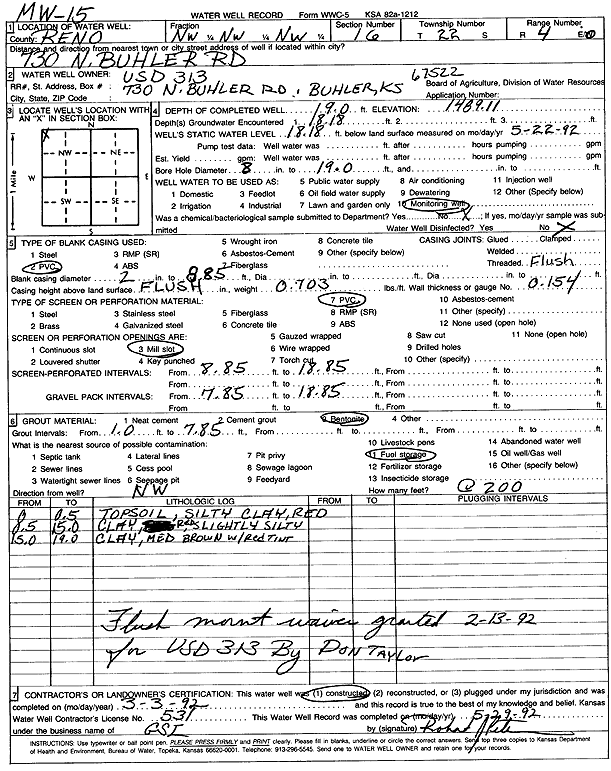 MW-15
WATER WELL RECORD Form WWC-5 KSA 82a-1212
1 LOCATION OF WATER WELL: Fraction Section Number Township Number Range Number
County: RENO NW ¼ NW ¼ NW ¼ 16 T 22 S R 4 E/W
Distance and direction from nearest town or city street address of well if located within city?
730 N. BUHLER RD
2 WATER WELL OWNER: USD 313 67522
RR#, St. Address, Box # : 730 N. BUHLER RD., BUHLER, KS Board of Agriculture, Division of Water Resources
City, State, ZIP Code : Application Number:
3 LOCATE WELL'S LOCATION WITH AN "X" IN SECTION BOX:
N
X
NW NE
W E
SW SE
S
1 Mile
4 DEPTH OF COMPLETED WELL 19.0 ft. ELEVATION: 1489.11
Depth(s) Groundwater Encountered 1. 18.18 ft. 2. ft. 3. ft.
WELL'S STATIC WATER LEVEL 18.18 ft. below land surface measured on mo/day/yr 5-22-92
Pump test data: Well water was ft. after hours pumping gpm
Est. Yield gpm: Well water was ft. after hours pumping gpm
Bore Hole Diameter 8 in. to 19.0 ft., and in. to ft.
WELL WATER TO BE USED AS: 5 Public water supply 8 Air conditioning 11 Injection well
1 Domestic 3 Feedlot 6 Oil field water supply 9 Dewatering 12 Other (Specify below)
2 Irrigation 4 Industrial 7 Lawn and garden only 10 Monitoring well
Was a chemical/bacteriological sample submitted to Department? Yes No X ; If yes, mo/day/yr sample was submitted
Water Well Disinfected? Yes No X
5 TYPE OF BLANK CASING USED: 5 Wrought iron 8 Concrete tile CASING JOINTS: Glued Clamped
1 Steel 3 RMP (SR) 6 Asbestos-Cement 9 Other (specify below) Welded
2 PVC 4 ABS 7 Fiberglass Threaded. Flush
Blank casing diameter 2 in. to 8.85 ft., Dia in. to ft., Dia in. to ft.
Casing height above land surface FLUSH in., weight 0.703 lbs./ft. Wall thickness or gauge No. 0.154
TYPE OF SCREEN OR PERFORATION MATERIAL: 7 PVC 10 Asbestos-cement
1 Steel 3 Stainless steel 5 Fiberglass 8 RMP (SR) 11 Other (specify)
2 Brass 4 Galvanized steel 6 Concrete tile 9 ABS 12 None used (open hole)
SCREEN OR PERFORATION OPENINGS ARE: 5 Gauzed wrapped 8 Saw cut 11 None (open hole)
1 Continuous slot 3 Mill slot 6 Wire wrapped 9 Drilled holes
2 Louvered shutter 4 Key punched 7 Torch cut 10 Other (specify)
SCREEN-PERFORATED INTERVALS: From 8.85 ft. to 18.85 ft., From ft. to ft.
From ft. to ft., From ft. to ft.
GRAVEL PACK INTERVALS: From 7.85 ft. to 18.85 ft., From ft. to ft.
From ft. to ft., From ft. to ft.
6 GROUT MATERIAL: 1 Neat cement 2 Cement grout 3 Bentonite 4 Other
Grout Intervals: From 1.0 ft. to 7.85 ft., From ft. to ft., From ft. to ft.
What is the nearest source of possible contamination: 10 Livestock pens 14 Abandoned water well
1 Septic tank 4 Lateral lines 7 Pit privy 11 Fuel storage 15 Oil well/Gas well
2 Sewer lines 5 Cess pool 8 Sewage lagoon 12 Fertilizer storage 16 Other (specify below)
3 Watertight sewer lines 6 Seepage pit 9 Feedyard 13 Insecticide storage
Direction from well? NW How many feet? @ 200
FROM TO LITHOLOGIC LOG FROM TO PLUGGING INTERVALS
0 8.5 TOPSOIL, SILTY CLAY, RED
8.5 15.0 CLAY, RED, SLIGHTLY SILTY
15.0 19.0 CLAY, MED BROWN W/RED TINT
Flush mount waiver granted 2-13-92
for USD 313 By DON TAYLOR
7 CONTRACTOR'S OR LANDOWNER'S CERTIFICATION: This water well was (1) constructed, (2) reconstructed, or (3) plugged under my jurisdiction and was
completed on (mo/day/year) 3-3-92 and this record is true to the best of my knowledge and belief. Kansas
Water Well Contractor's License No. 531 This Water Well Record was completed on (mo/day/yr) 5-29-92
under the business name of GSI by (signature)
INSTRUCTIONS: Use typewriter or ball point pen. PLEASE PRESS FIRMLY and PRINT clearly. Please fill in blanks, underline or circle the correct answers. Send top three copies to Kansas Department
of Health and Environment, Bureau of Water, Topeka, Kansas 66620-0001. Telephone: 913-296-5545. Send one to WATER WELL OWNER and retain one for your records.